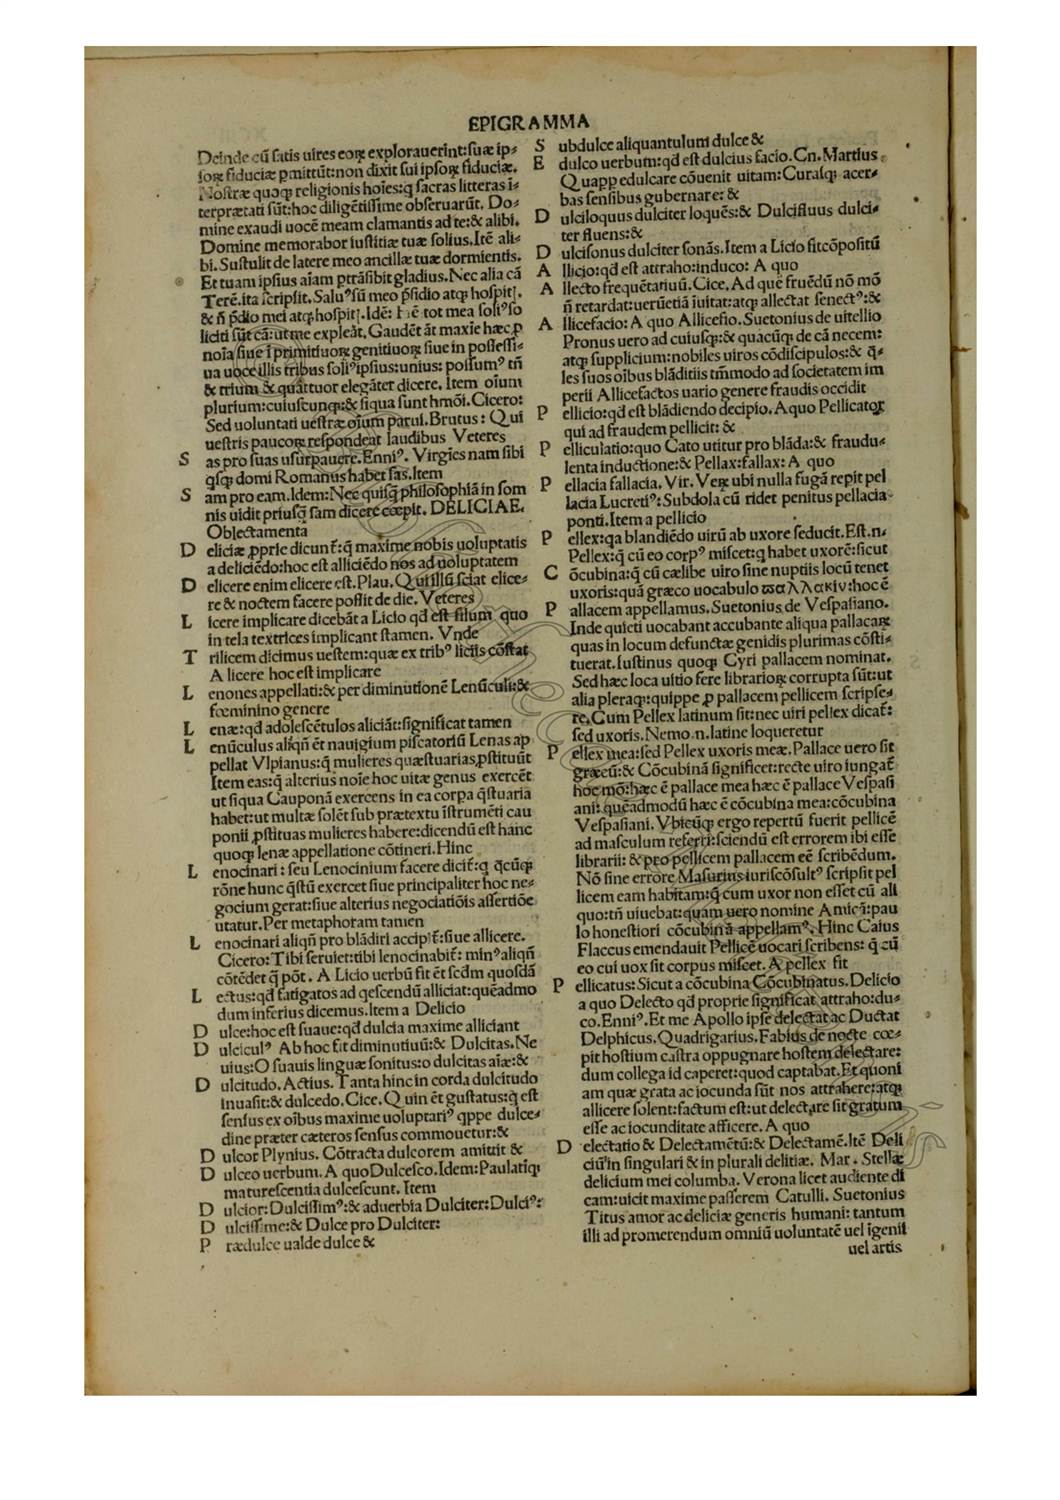 EPIGRAMMA
Deinde cū satis uires eoꝝ explorauerint:suæ ip-
soꝝ fiduciæ ꝑmittūt:non dixit sui ipsoꝝ fiduciæ.
Nostræ quoqꝫ religionis hoīes:q sacras litteras ī-
terprætati sūt:hoc diligētissime obseruarūt. Do-
mine exaudi uocē meam clamantis ad te:& alibi.
Domine memorabor iustitiæ tuæ solius.Itē ali-
bi.Sustulit de latere meo ancillæ tuæ dormientis.
Et tuam ipsius aīam ptrāsibit gladius.Nec alia cā
Terē.ita scripsit.Saluꝰ sū meo p̄sidio atqꝫ hospit|.
& n̄ p̄dio mei atqꝫ hospit|.Idē: tot mea soliꝰ so
liciti sūt cā:ut me expleāt.Gaudēt āt maxīe hæc ꝓ
noīa siue ī primitiuoꝝ genitiuoꝝ siue in possessi-
ua uoce illis tribus soliꝰ ipsius:unius: possumꝰ tn̄
& trium & quattuor elegāter dicere. Item oīum
plurium:cuiuscunqꝫ:& siqua sunt hmōi.Cicero:
Sed uoluntati uestræ oīum parui.Brutus: Qui
uestris paucoꝝ respondeat laudibus Veteres
S as pro suas usurpauere.Enniꝰ. Virgīes nam sibi
qsqꝫ domi Romanus habet sas.Item
S am pro eam.Idem:Nec quisq̄ philosophiā in som
nis uidit priusq̄ sam dicere cœpit. DELICIAE.
Oblectamenta
D eliciæ ꝓprie dicunt̄:q̄ maxime nobis uoluptatis
a deliciēdo:hoc est alliciēdo nos ad uoluptatem
D elicere enim elicere est.Plau.Qui illū sciat elice-
re & noctem facere possit de die. Veteres
L icere implicare dicebāt a Licio qd̄ est filum quo
in tela textrices implicant stamen. Vnde
T rilicem dicimus uestem:quæ ex tribꝰ liciis cōstat
A licere hoc est implicare
L enones appellati:& per diminutionē Lenūculi:&
fœminino genere
L enæ:qd̄ adolescētulos aliciāt:significat tamen
L enūculus aliqn̄ ēt nauigium piscatoriū Lenas ap
pellat Vlpianus:q̄ mulieres quæstuarias ꝓstituūt
Item eas:q̄ alterius noīe hoc uitæ genus exercēt
ut siqua Cauponā exercens in ea corpa q̄stuaria
habet:ut multæ solēt sub prætextu īstrumēti cau
ponii ꝓstituas mulieres habere:dicendū est hanc
quoqꝫ lenæ appellatione cōtineri.Hinc
L enocinari: seu Lenocinium facere dicit̄:q q̄cūqꝫ
rōne hunc q̄stū exercet siue principaliter hoc ne-
gocium gerat:siue alterius negociatiōis assertiōe
utatur.Per metaphoram tamen
L enocinari aliqn̄ pro blādiri accipit̄:siue allicere.
Cicero:Tibi seruiet:tibi lenocinabit̄: minꝰ aliqn̄
cōtēdet q̄ pōt. A Licio uerbū fit ēt scdm quosdā
L ectus:qd̄ fatigatos ad qescendū alliciat:quēadmo
dum inferius dicemus.Item a Delicio
D ulce:hoc est suaue:qd̄ dulcia maxime alliciant
D ulciculꝰ Ab hoc fit diminutiuū:& Dulcitas. Ne
uius:O suauis linguæ sonitus:o dulcitas aīæ:&
D ulcitudo. Actius. Tanta hinc in corda dulcitudo
inuasit:& dulcedo.Cice.Quin ēt gustatus:q̄ est
sensus ex oībus maxime uoluptariꝰ qppe dulce-
dine præter cæteros sensus commouetur:&
D ulcor Plynius. Cōtracta dulcorem amittit &
D ulceo uerbum. A quo Dulcesco.Idem:Paulatīqꝫ
maturescentia dulcescunt. Item
D ulcior:Dulcissimꝰ:& aduerbia Dulciter:Dulciꝰ:
D ulcissime:& Dulce pro Dulciter:
P rædulce ualde dulce &
S ubdulce aliquantulum dulce &
E dulco uerbum:qd̄ est dulcius facio.Cn.Martius
Quapp edulcare cōuenit uitam:Curasqꝫ acer-
bas sensibus gubernare:&
D ulciloquus dulciter loquēs:& Dulcifluus dulci-
ter fluens:&
D ulcisonus dulciter sonās.Item a Licio fit cōpositū
A llicio:qd̄ est attraho:induco: A quo
A llecto frequētatiuū.Cice. Ad quē fruēdū nō mō
n̄ retardat:uerūetiā īuitat:atqꝫ allectat senectꝰ:&
A llicefacio: A quo Allicefio.Suetonius de uitellio
Pronus uero ad cuiusqꝫ:& quacūqꝫ de cā necem:
atqꝫ supplicium:nobiles uiros cōdiscipulos:& q̄-
les suos oībus blāditiis tm̄modo ad societatem im
perii Allicefactos uario genere fraudis occidit
P ellicio:qd̄ est blādiendo decipio. A quo Pellicator
qui ad fraudem pellicit: &
P elliculatio:quo Cato utitur pro blāda:& fraudu-
lenta inductione:& Pellax:fallax: A quo
P ellacia fallacia. Vir. Veꝝ ubi nulla fugā repit pel
lacia Lucretiꝰ:Subdola cū ridet penitus pellacia
ponti.Item a pellicio
P ellex:qa blandiēdo uirū ab uxore seducit.Est.n.
Pellex:q̄ cū eo corpꝰ miscet:q habet uxorē:sicut
C ōcubina:q̄ cū cælibe uiro sine nuptiis locū tenet
uxoris:quā græco uocabulo ϖαλλακίν:hoc ē
P allacem appellamus.Suetonius de Vespasiano.
Inde quieti uocabant accubante aliqua pallacaꝝ
quas in locum defunctæ genidis plurimas cōsti-
tuerat.Iustinus quoqꝫ Cyri pallacem nominat.
Sed hæc loca uitio fere librarioꝝ corrupta sūt:ut
alia pleraqꝫ:quippe ꝓ pallacem pellicem scripse-
re.Cum Pellex latinum sit:nec uiri pellex dicat̄:
sed uxoris.Nemo.n.latine loqueretur
P ellex mea:sed Pellex uxoris meæ.Pallace uero sit
græcū:& Cōcubinā significet:recte uiro iungat̄
hoc mō:hæc ē pallace mea hæc ē pallace Vespasi
ani: quēadmodū hæc ē cōcubina mea:cōcubina
Vespasiani.Vbicūqꝫ ergo repertū fuerit pellicē
ad masculum referri:sciendū est errorem ibi esse
librarii: & pro pellicem pallacem eē scribēdum.
Nō sine errore Masurius iuriscōsultꝰ scripsit pel
licem eam habitam:q̄ cum uxor non esset cū ali
quo:tn̄ uiuebat:quam uero nomine Amicā:pau
lo honestiori cōcubinā appellamꝰ. Hinc Caius
Flaccus emendauit Pellicē uocari scribens: q̄ cū
eo cui uox sit corpus miscet. A pellex fit
P ellicatus:Sicut a cōcubina Cōcubinatus. Delicio
a quo Delecto qd̄ proprie significat attraho:du-
co.Enniꝰ.Et me Apollo ipse delectat ac Ductat
Delphicus.Quadrigarius.Fabius de nocte cœ-
pit hostium castra oppugnare hostem delectare:
dum collega id caperet:quod captabat.Et quoni
am quæ grata ac iocunda sūt nos attrahere:atqꝫ
allicere solent:factum est:ut delectare sit gratum
esse ac iocunditate afficere. A quo
D electatio & Delectamētū:& Delectamē.Itē Deli
ciū in singulari & in plurali delitiæ. Mar. Stellæ
delicium mei columba. Verona licet audiente di
cam:uicit maxime passerem Catulli. Suetonius
Titus amor ac deliciæ generis humani: tantum
illi ad promerendum omniū uoluntatē uel īgenii
uel artis